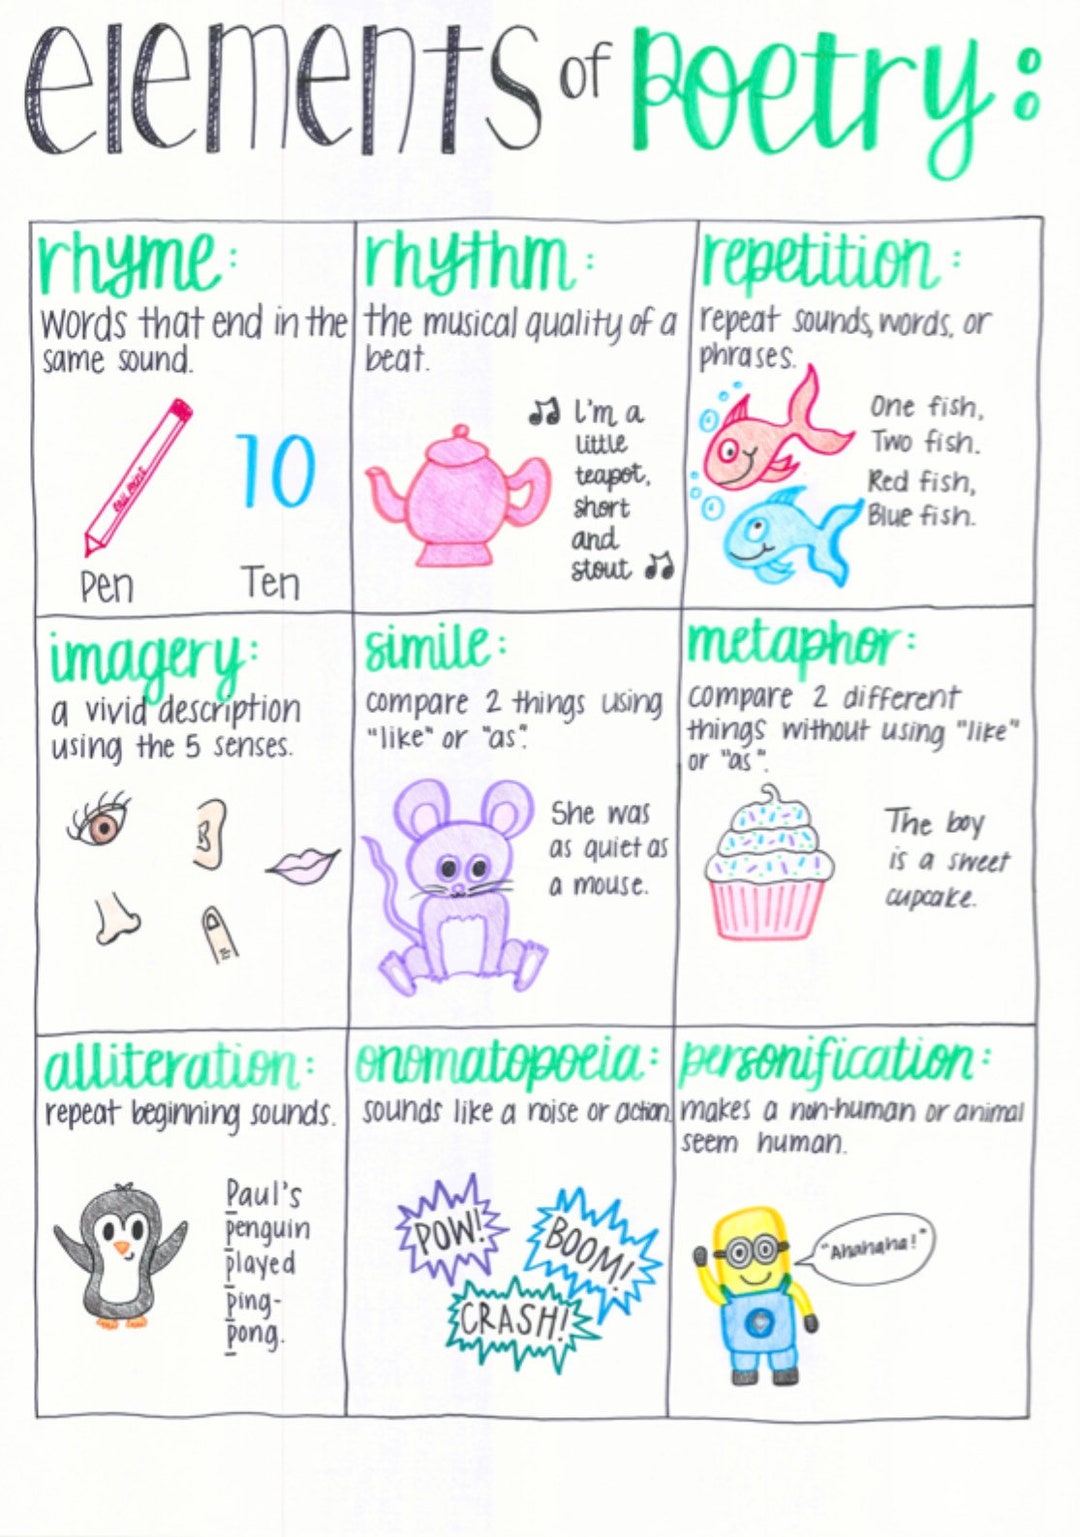 elements of poetry:
rhyme:
words that end in the
same sound.
10
Pen
Ten
rhythm:
the musical quality of a
beat.
I'm a
little
teapot,
short
and
stout
repetition:
repeat sounds, words, or
phrases.
One fish,
Two fish.
Red fish,
Blue fish.
imagery:
a vivid description
using the 5 senses.
simile:
compare 2 things using
"like" or "as".
She was
as quiet as
a mouse.
metaphor:
compare 2 different
things without using "like"
or "as".
The boy
is a sweet
cupcake.
alliteration:
repeat beginning sounds.
Paul's
penguin
played
ping-
pong.
onomatopoeia:
sounds like a noise or action
POW!
BOOM!
CRASH!
personification:
makes a non-human or animal
seem human.
"Ahahaha!"